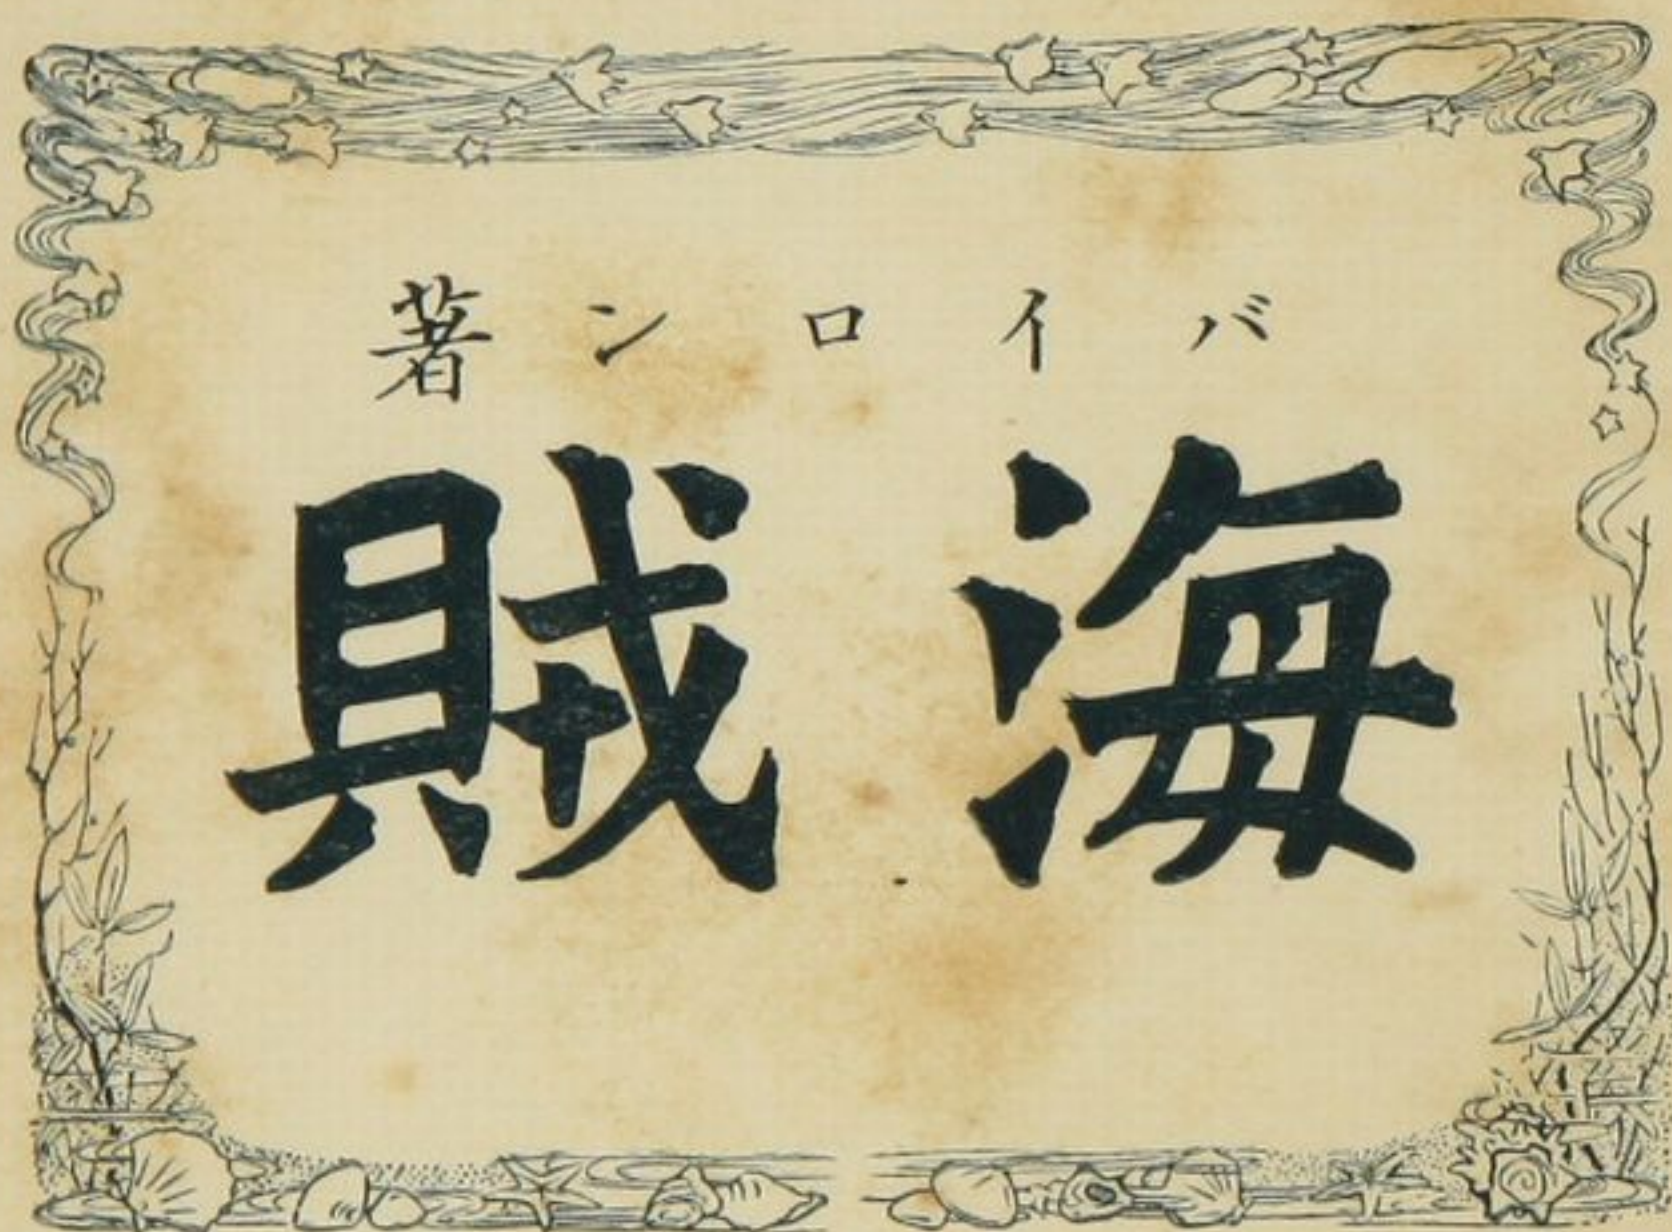 バイロン著
海賊